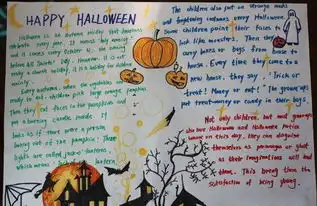 HAPPY HALLOWEEN
Halloween is an autumn holiday that Americans
celebrate every year. It means
and it comes every October 31, the evening
before All Saints' Day. However, it is not
really a church holiday, it is a holiday for children
mainly.
Every autumn, when the vegetables are
ready to eat, children pick large orange pumpkins.
Then they cut faces in the pumpkins and
put a burning candle inside. It
looks as if there were a person
looking out of the pumpkin. These
lights are called jack-o'-lanterns,
which means
The children also put on strange masks
and frightening costumes every Halloween.
Some children paint their faces to
look like monsters. Then they
carry boxes or bags from house to
house. Every time they come to a
new house, they say, "Trick or
treat! Money or eat!" The grown-ups
put treat-money or candy in their bags.
Not only children, but most grown-ups
also love Halloween and Halloween parties
because on this day, they can disguise
themselves as personages or ghost
as their imaginations will lead
them. This bring them the
satisfaction of being young.